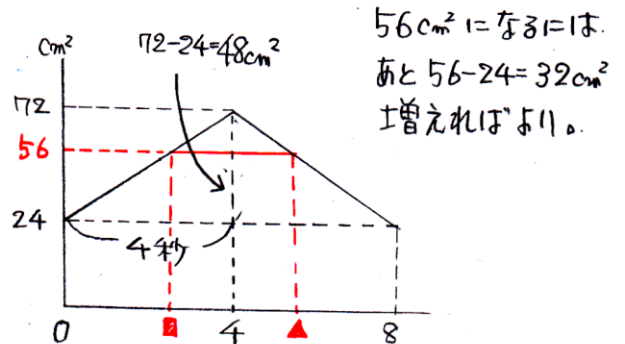 cm²
72-24=48cm²
72
56
24
4秒
0
■
4
▲
8
56cm²になるには
あと56-24=32cm²
増えればよい。